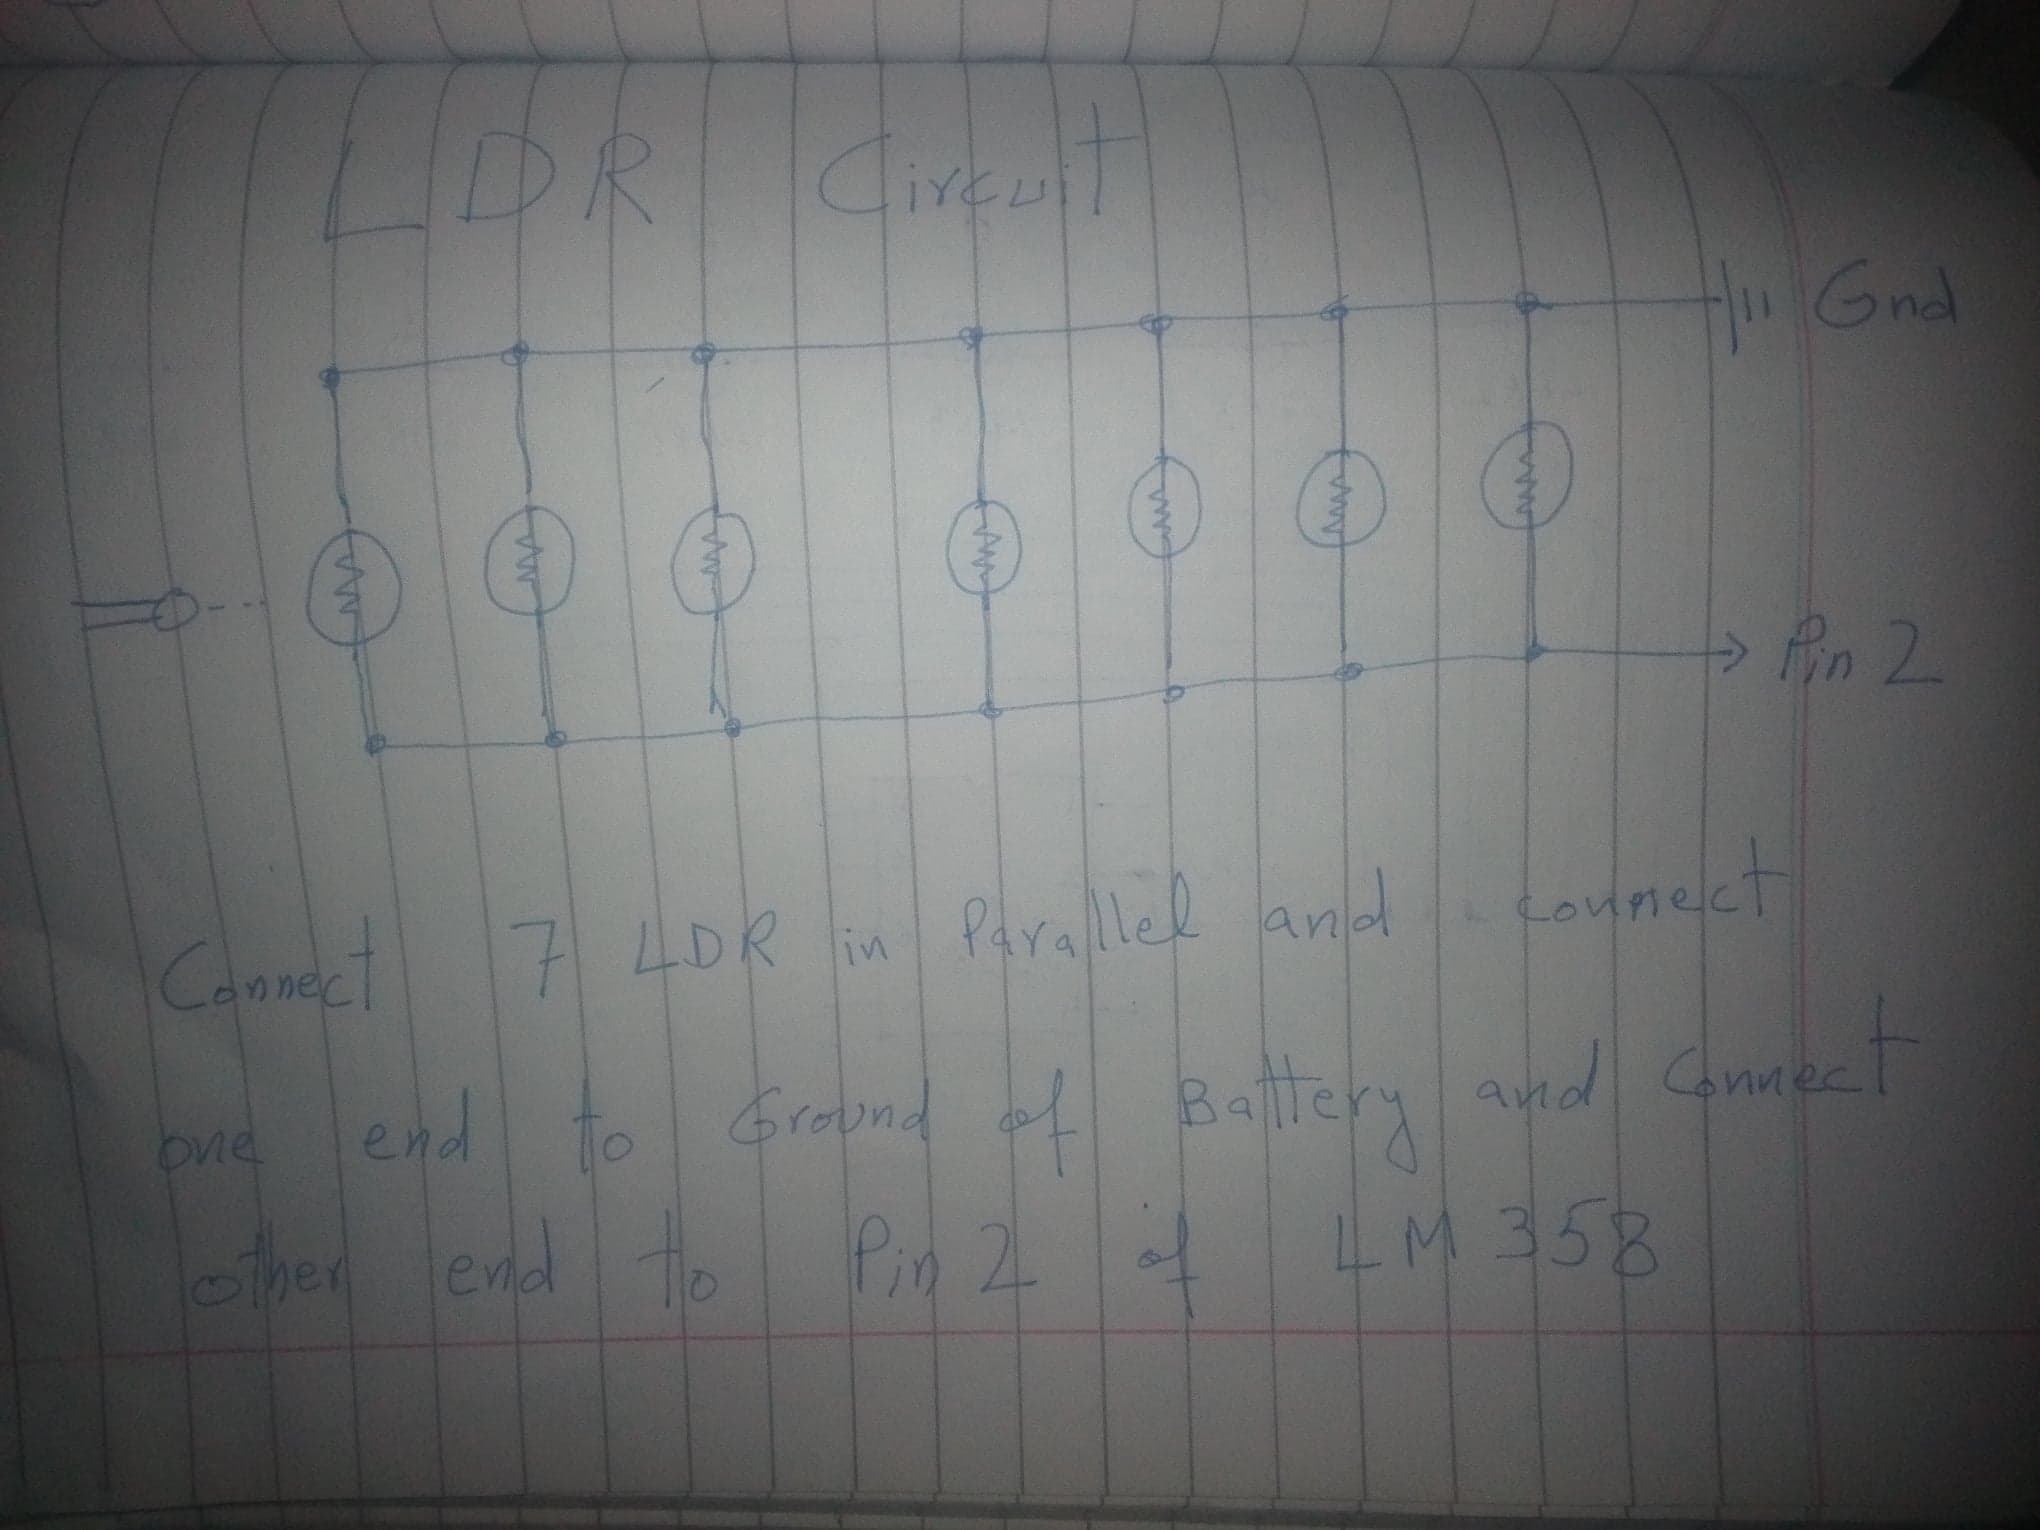 LDR Circuit
Gnd
Pin 2
Connect 7 LDR in Parallel and connect
one end to Ground of Battery and Connect
other end to Pin 2 of LM 358